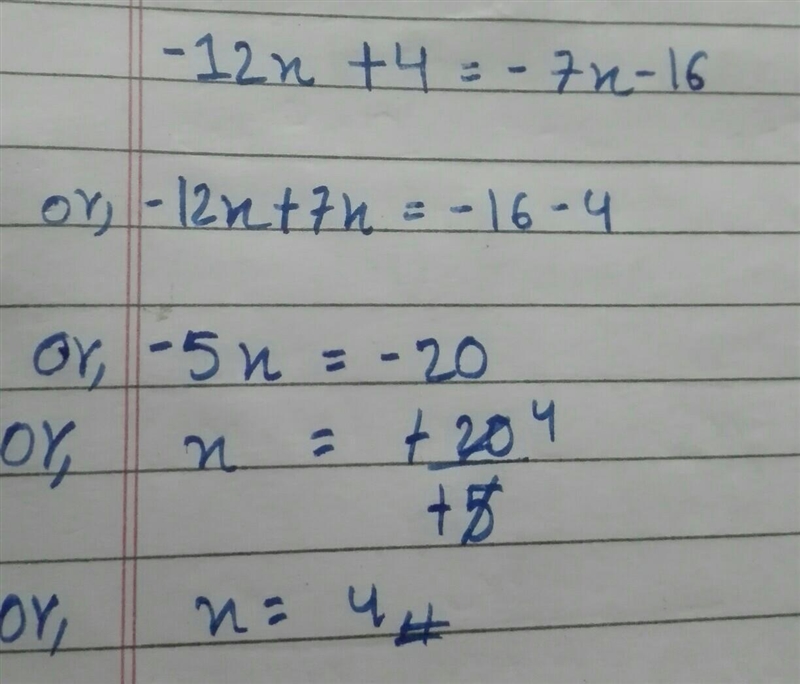 -12x + 4 = -7x - 16
or, -12x + 7x = -16 - 4
or, -5x = -20
or, x = +20 4
+5
or, x = 4 #